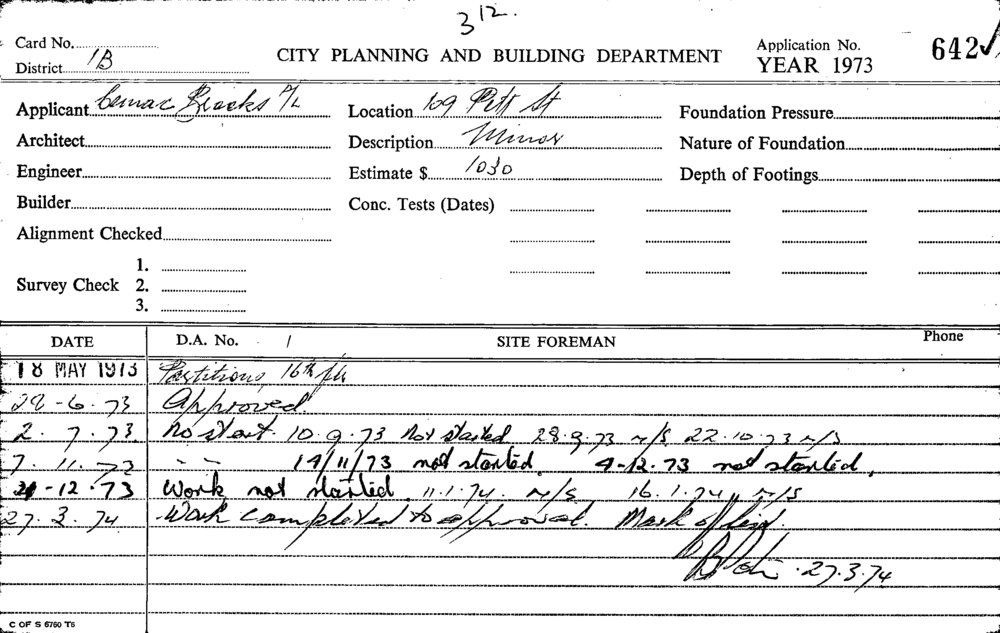 312.
Card No.
District 1B
CITY PLANNING AND BUILDING DEPARTMENT
Application No. 642
YEAR 1973
Applicant Cemac Brooks P/L
Location 109 Pitt St
Foundation Pressure
Architect
Description Minor
Nature of Foundation
Engineer
Estimate $ 1030
Depth of Footings
Builder
Conc. Tests (Dates)
Alignment Checked
Survey Check
1.
2.
3.
DATE D.A. No. / SITE FOREMAN Phone
18 MAY 1973 Partitions, 16th flr
28-6.73 Approved.
2.7.73 No start. 10.9.73 Not started 28.9.73 N/S 22.10.73 N/S
7.11.73 -- 14/11/73 not started, 4-12.73 not started,
-12.73 Work not started. 11.1.74. N/S 16.1.74 N/S
27.3.74 Work completed to approval. Mark off
27.3.74
C OF S 6760 T5